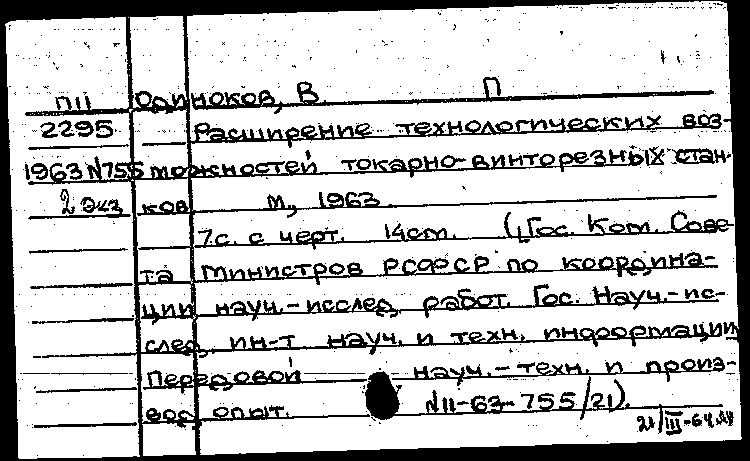 П11 Одиноков, В. П
2295 Расширение технологических воз-
1963 N755 можностей токарно-винторезных стан-
2 экз ков М., 1963.
7с. с черт. 14см. (Гос. Ком. Сове-
та Министров РСФСР по координа-
ции науч.-исслед. работ. Гос. Науч.-ис-
след. ин-т науч. и техн. информации
Передовой науч.-техн. и произ-
вод. опыт. N11-63-755/21).
21/III-64